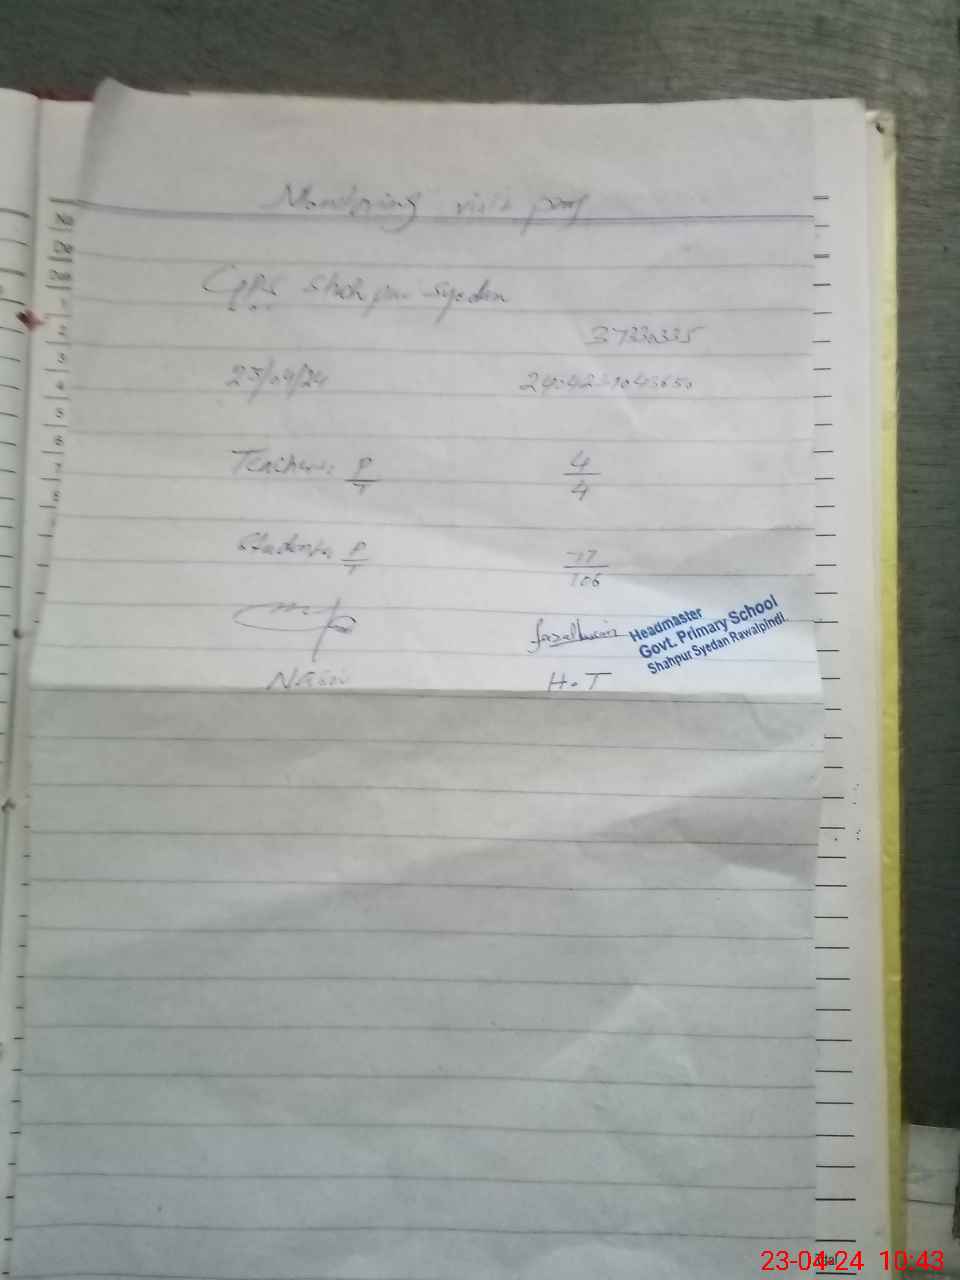 Monitoring visit proof
GPS Shahpur Syedan
37330335
23/04/24
Teachers P/T 4/4
Students P/T 77/106
fazalhusain
Headmaster
Govt. Primary School
Shahpur Syedan Rawalpindi.
H.T
Total
23-04-24 10:43